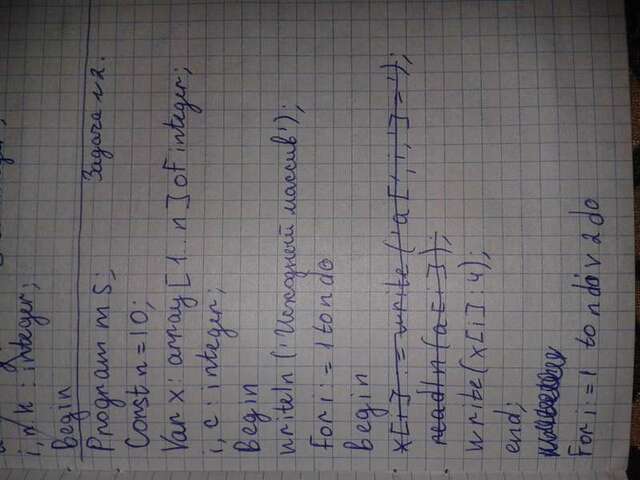 i, n, k : integer;
Begin
Program m5; Задача №2.
Const n=10;
Var x: array [1...n] of integer;
i, c : integer;
Begin
writeln ('Исходный массив');
For i:=1 to n do
begin
x[i] := write ('a[', i, ']=');
readln(a[i]);
write(x[i]:4);
end;
For i:=1 to n div 2 do